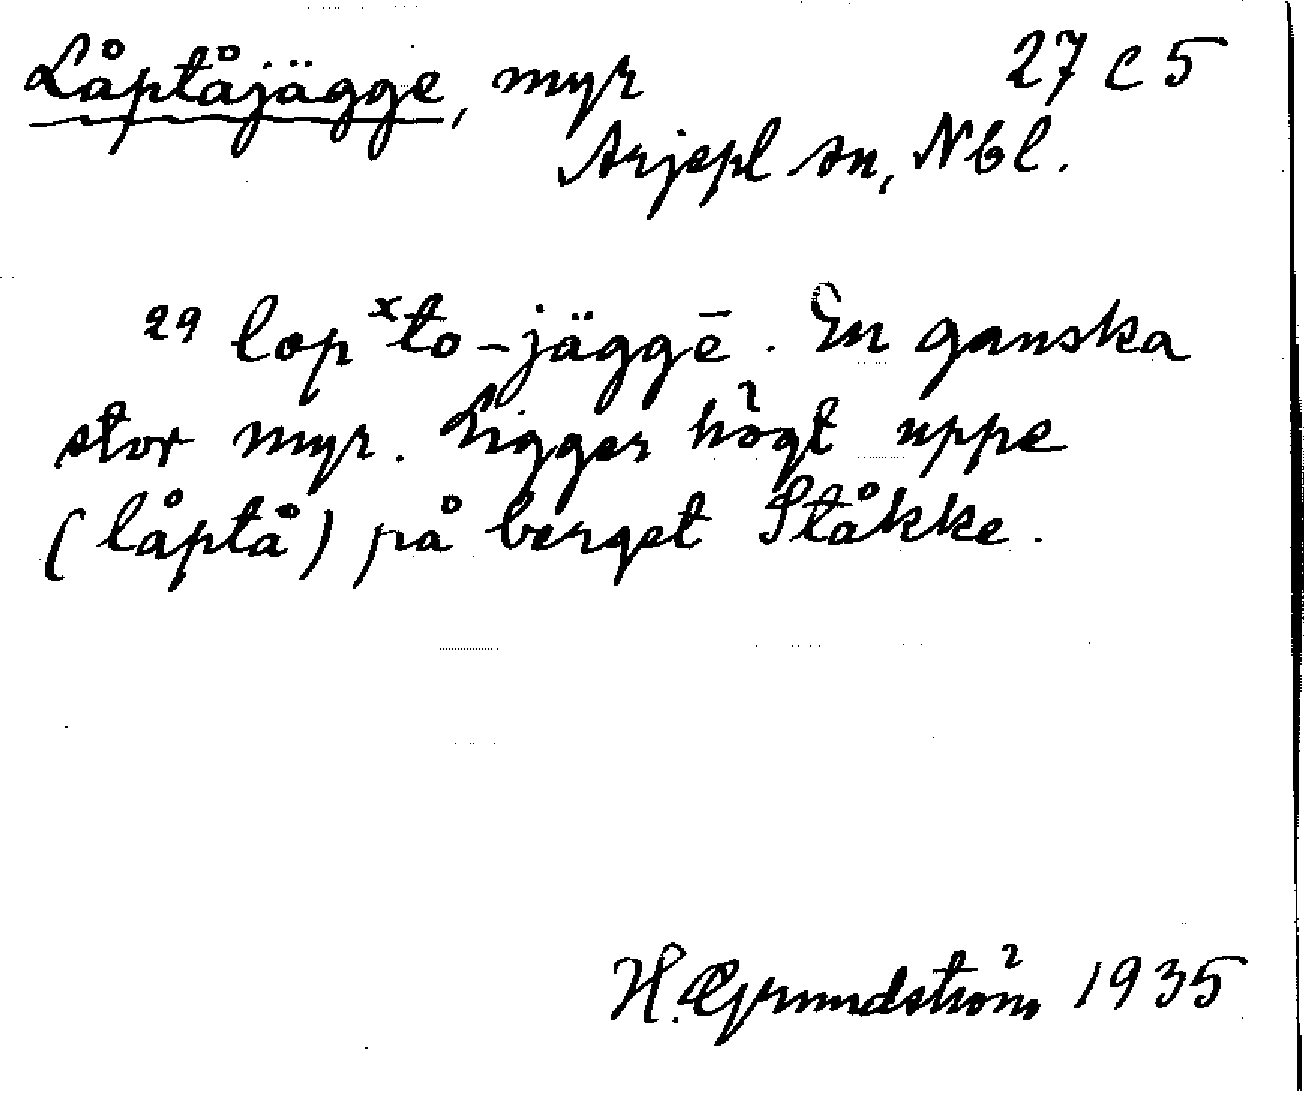 Låptåjägge, myr 27 C 5
Arjepl sn, Nbl.
29 lopˣto-jäggē. En ganska
stor myr. Ligger högt uppe
(låptå) på berget Ståkke.
H. Grundström 1935